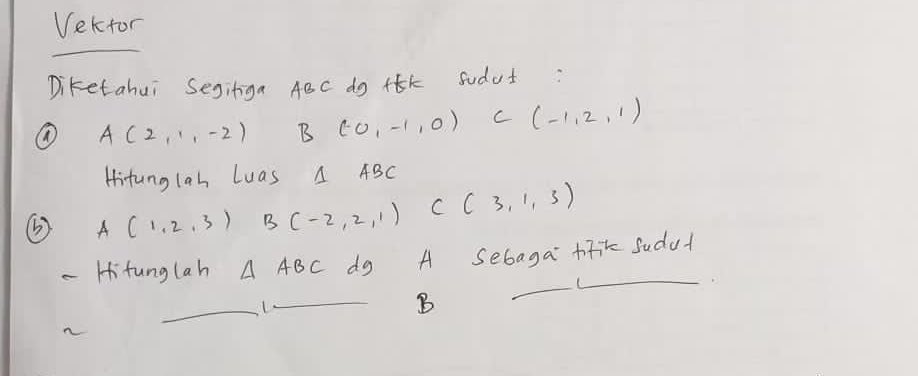 Vektor
Diketahui Segitiga ABC dg ttk sudut :
(a) A (2, 1, -2) B (0, -1, 0) C (-1, 2, 1)
Hitunglah Luas Δ ABC
(b) A (1, 2, 3) B (-2, 2, 1) C (3, 1, 3)
- Hitunglah Δ ABC dg A sebagai titik sudut
~ B